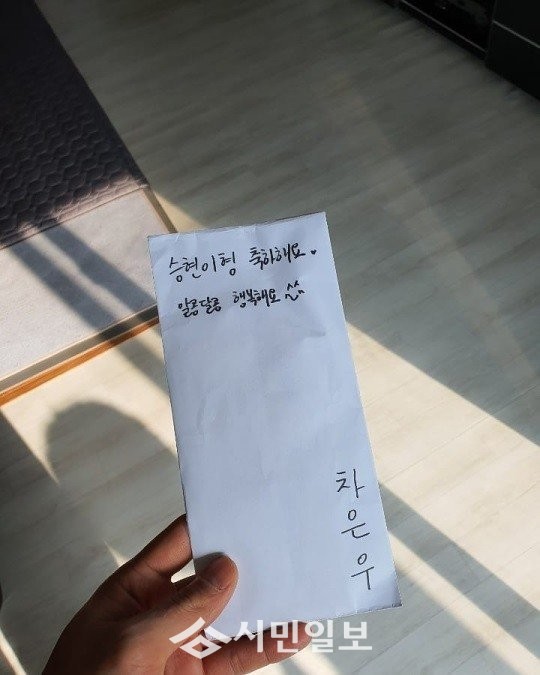 승현이형 축하해요.
알콩달콩 행복해요 ^^
차은우
시민일보